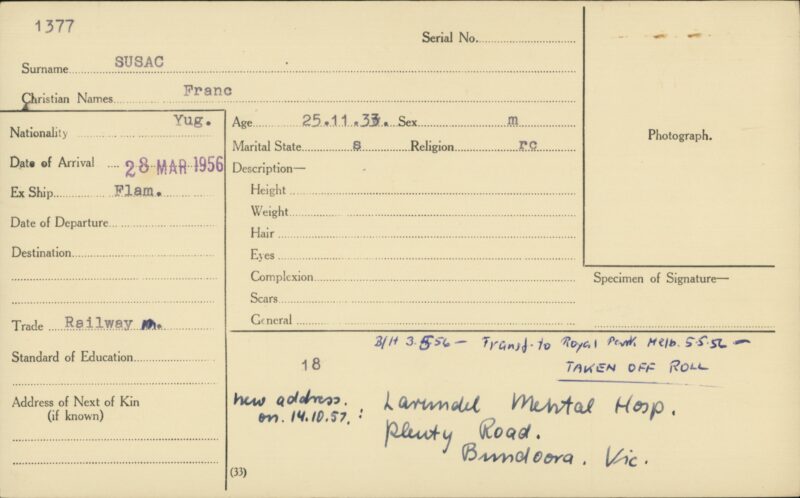 1377
Serial No.
Surname SUSAC
Christian Names Franc
Nationality Yug.
Date of Arrival 28 MAR 1956
Ex Ship Flam.
Date of Departure
Destination
Trade Railway m.
Standard of Education
Address of Next of Kin
(if known)
Age 25.11.33. Sex m
Marital State s Religion rc
Description—
Height
Weight
Hair
Eyes
Complexion
Scars
General
Photograph.
Specimen of Signature—
B/H 3.5.56 — Transf. to Royal Park Melb. 5.5.56 —
18
TAKEN OFF ROLL
new address. : Larundel Mental Hosp.
on. 14.10.57.
Plenty Road.
Bundoora. Vic.
(33)